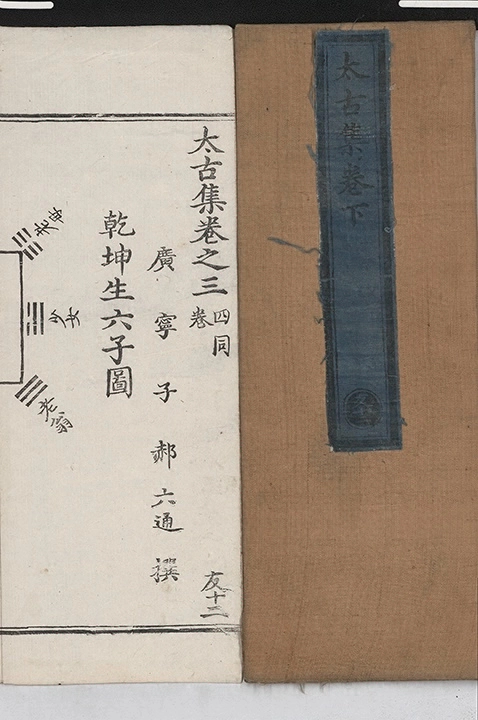 太古集卷下
太古集卷之三 四同卷
廣寧子郝六通撰
乾坤生六子圖
少女
老翁